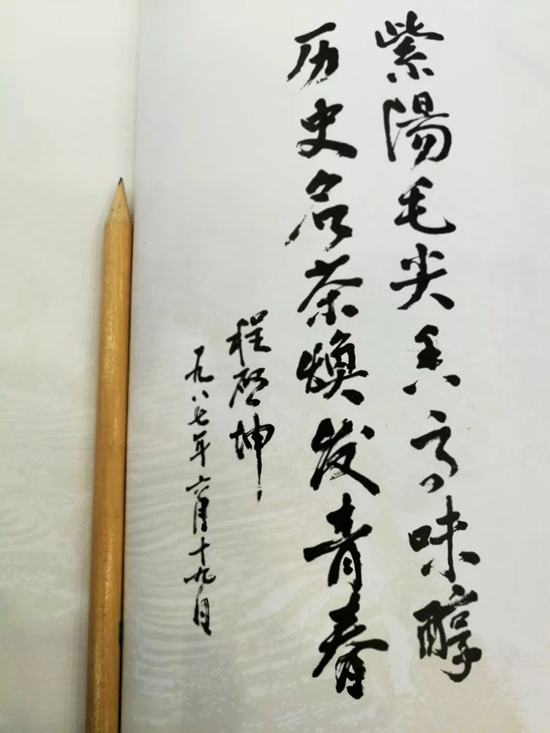 紫陽毛尖香高味醇
历史名茶焕发青春
程启坤
一九八七年六月十九日